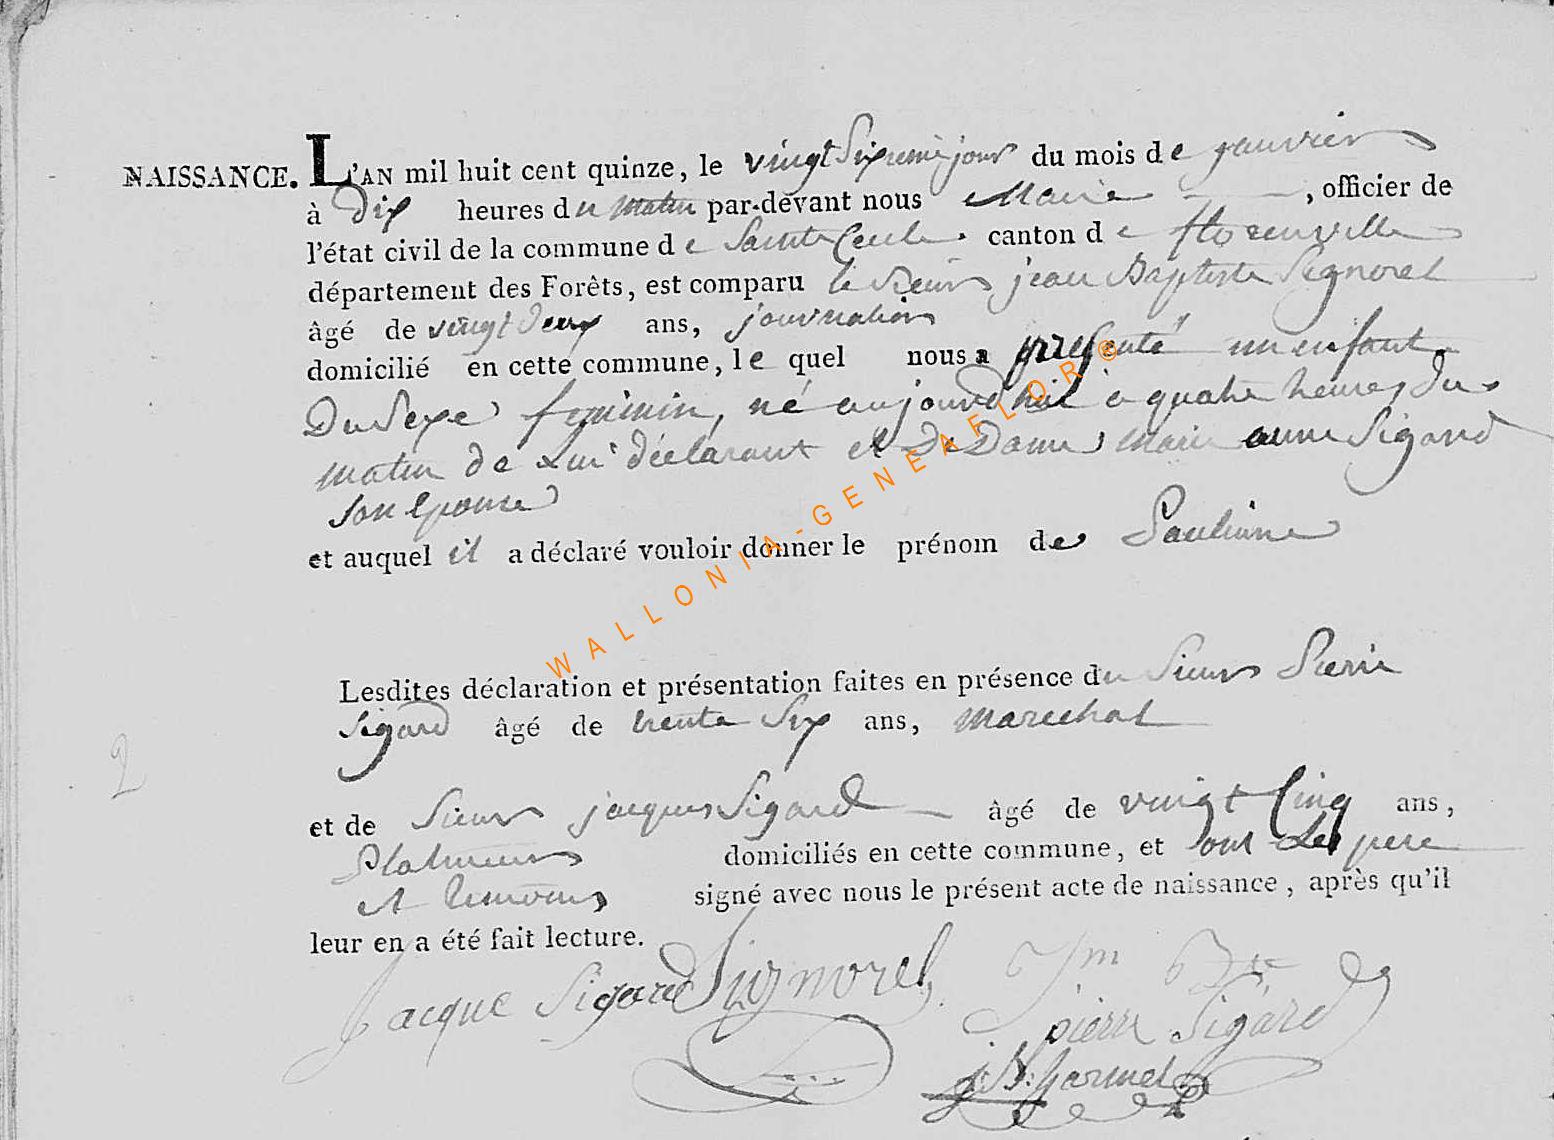 NAISSANCE. L'AN mil huit cent quinze, le vingt Sixieme jour du mois de janvier
à Dix heures du matin par-devant nous Maire , officier de
l'état civil de la commune de Sainte Cecile canton de florenville
département des Forêts, est comparu le Sieur jean Baptiste Signorel
âgé de vingt Deux ans, journalier
domicilié en cette commune, lequel nous a presenté un enfant
Du Sexe feminin, né aujourd'hui à quatre heures du
matin de Lui déclarant et De Dame Marie anne Sigard
son Epouse
et auquel il a déclaré vouloir donner le prénom de Pauline
Lesdites déclaration et présentation faites en présence du Sieur Pierre
Sigard âgé de trente Six ans, marechal
2
et de Sieur jacques Sigard âgé de vingt Cinq ans,
domiciliés en cette commune, et ont Les pere
et temoins signé avec nous le présent acte de naissance, après qu'il
leur en a été fait lecture.
Jacque Sigard Signorel
pierre Sigard
WALLONIA-GENEAFLOR®